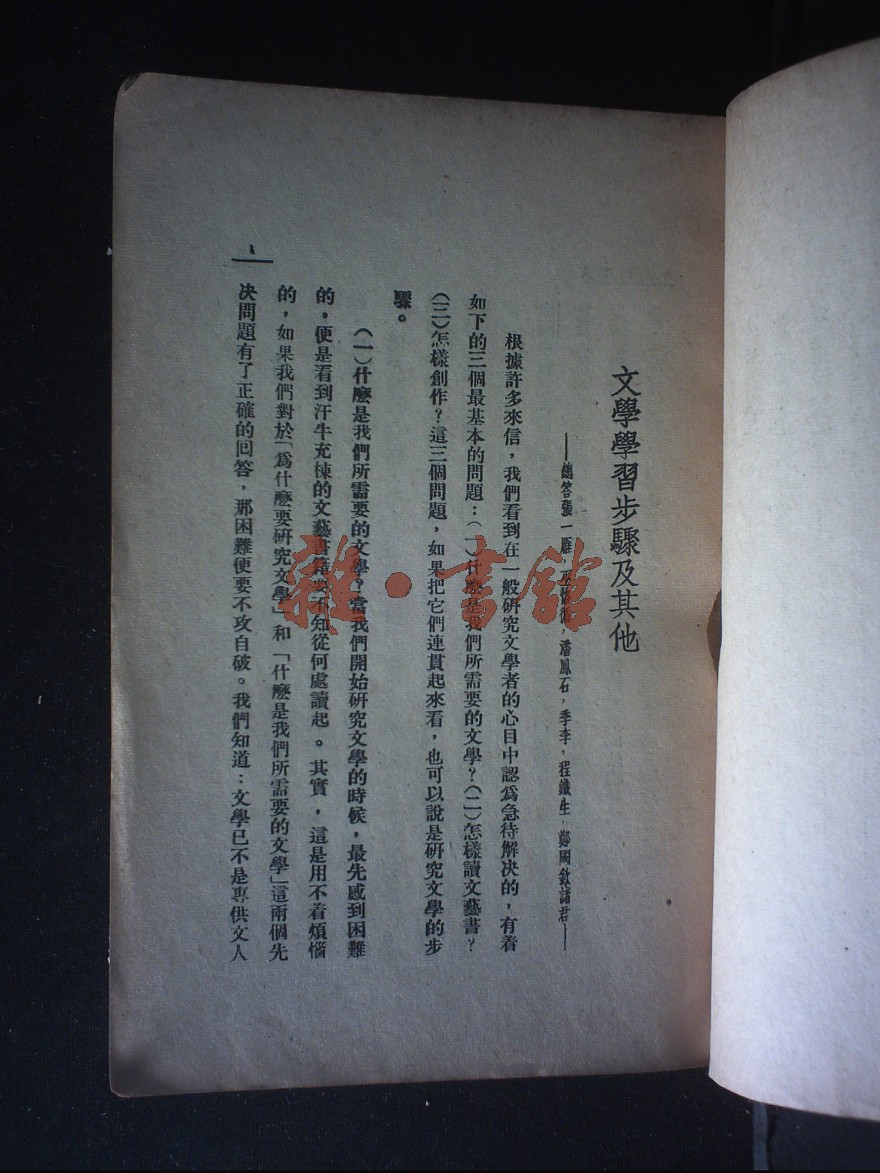 文學學習步驟及其他
——總答張一雁，潘鳳石，季李，程鐵生，鄭國欽諸君——
根據許多來信，我們看到在一般研究文學者的心目中認爲急待解決的，有着
如下的三個最基本的問題：（一）什麽是我們所需要的文學？（二）怎樣讀文藝書？
（三）怎樣創作？這三個問題，如果把它們連貫起來看，也可以說是研究文學的步
驟。
（一）什麽是我們所需要的文學？當我們開始研究文學的時候，最先感到困難
的，便是看到汗牛充棟的文藝書籍不知從何處讀起。其實，這是用不着煩惱
的，如果我們對於「爲什麽要研究文學」和「什麽是我們所需要的文學」這兩個先
决問題有了正確的回答，那困難便要不攻自破。我們知道：文學已不是專供文人
雜·書館